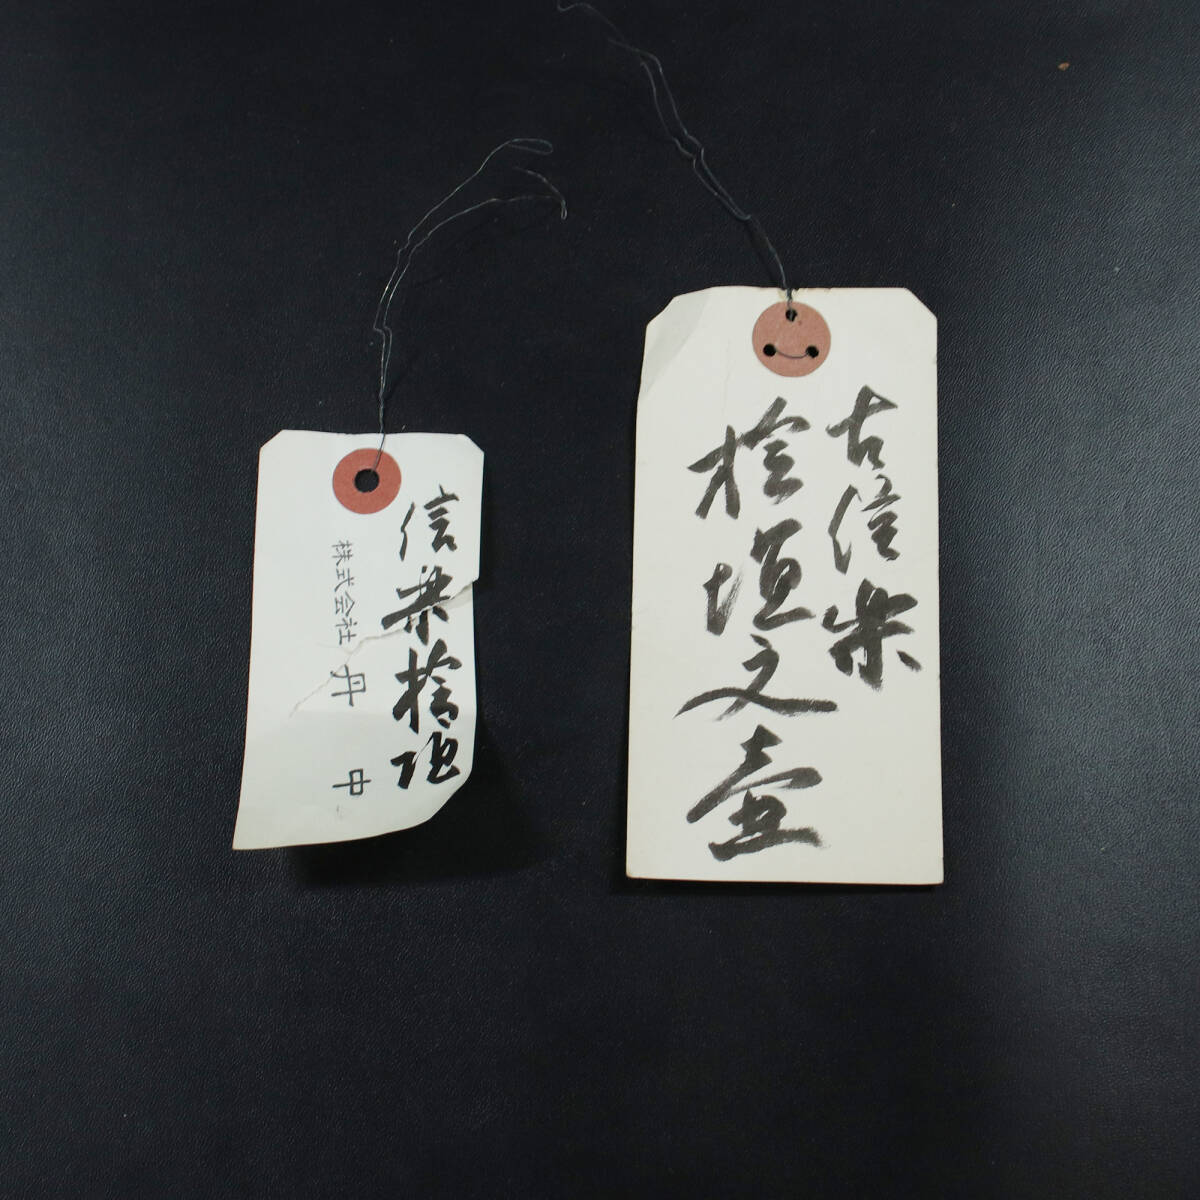 信楽桧垣
株式会社 丹中
古信楽
桧垣文壺